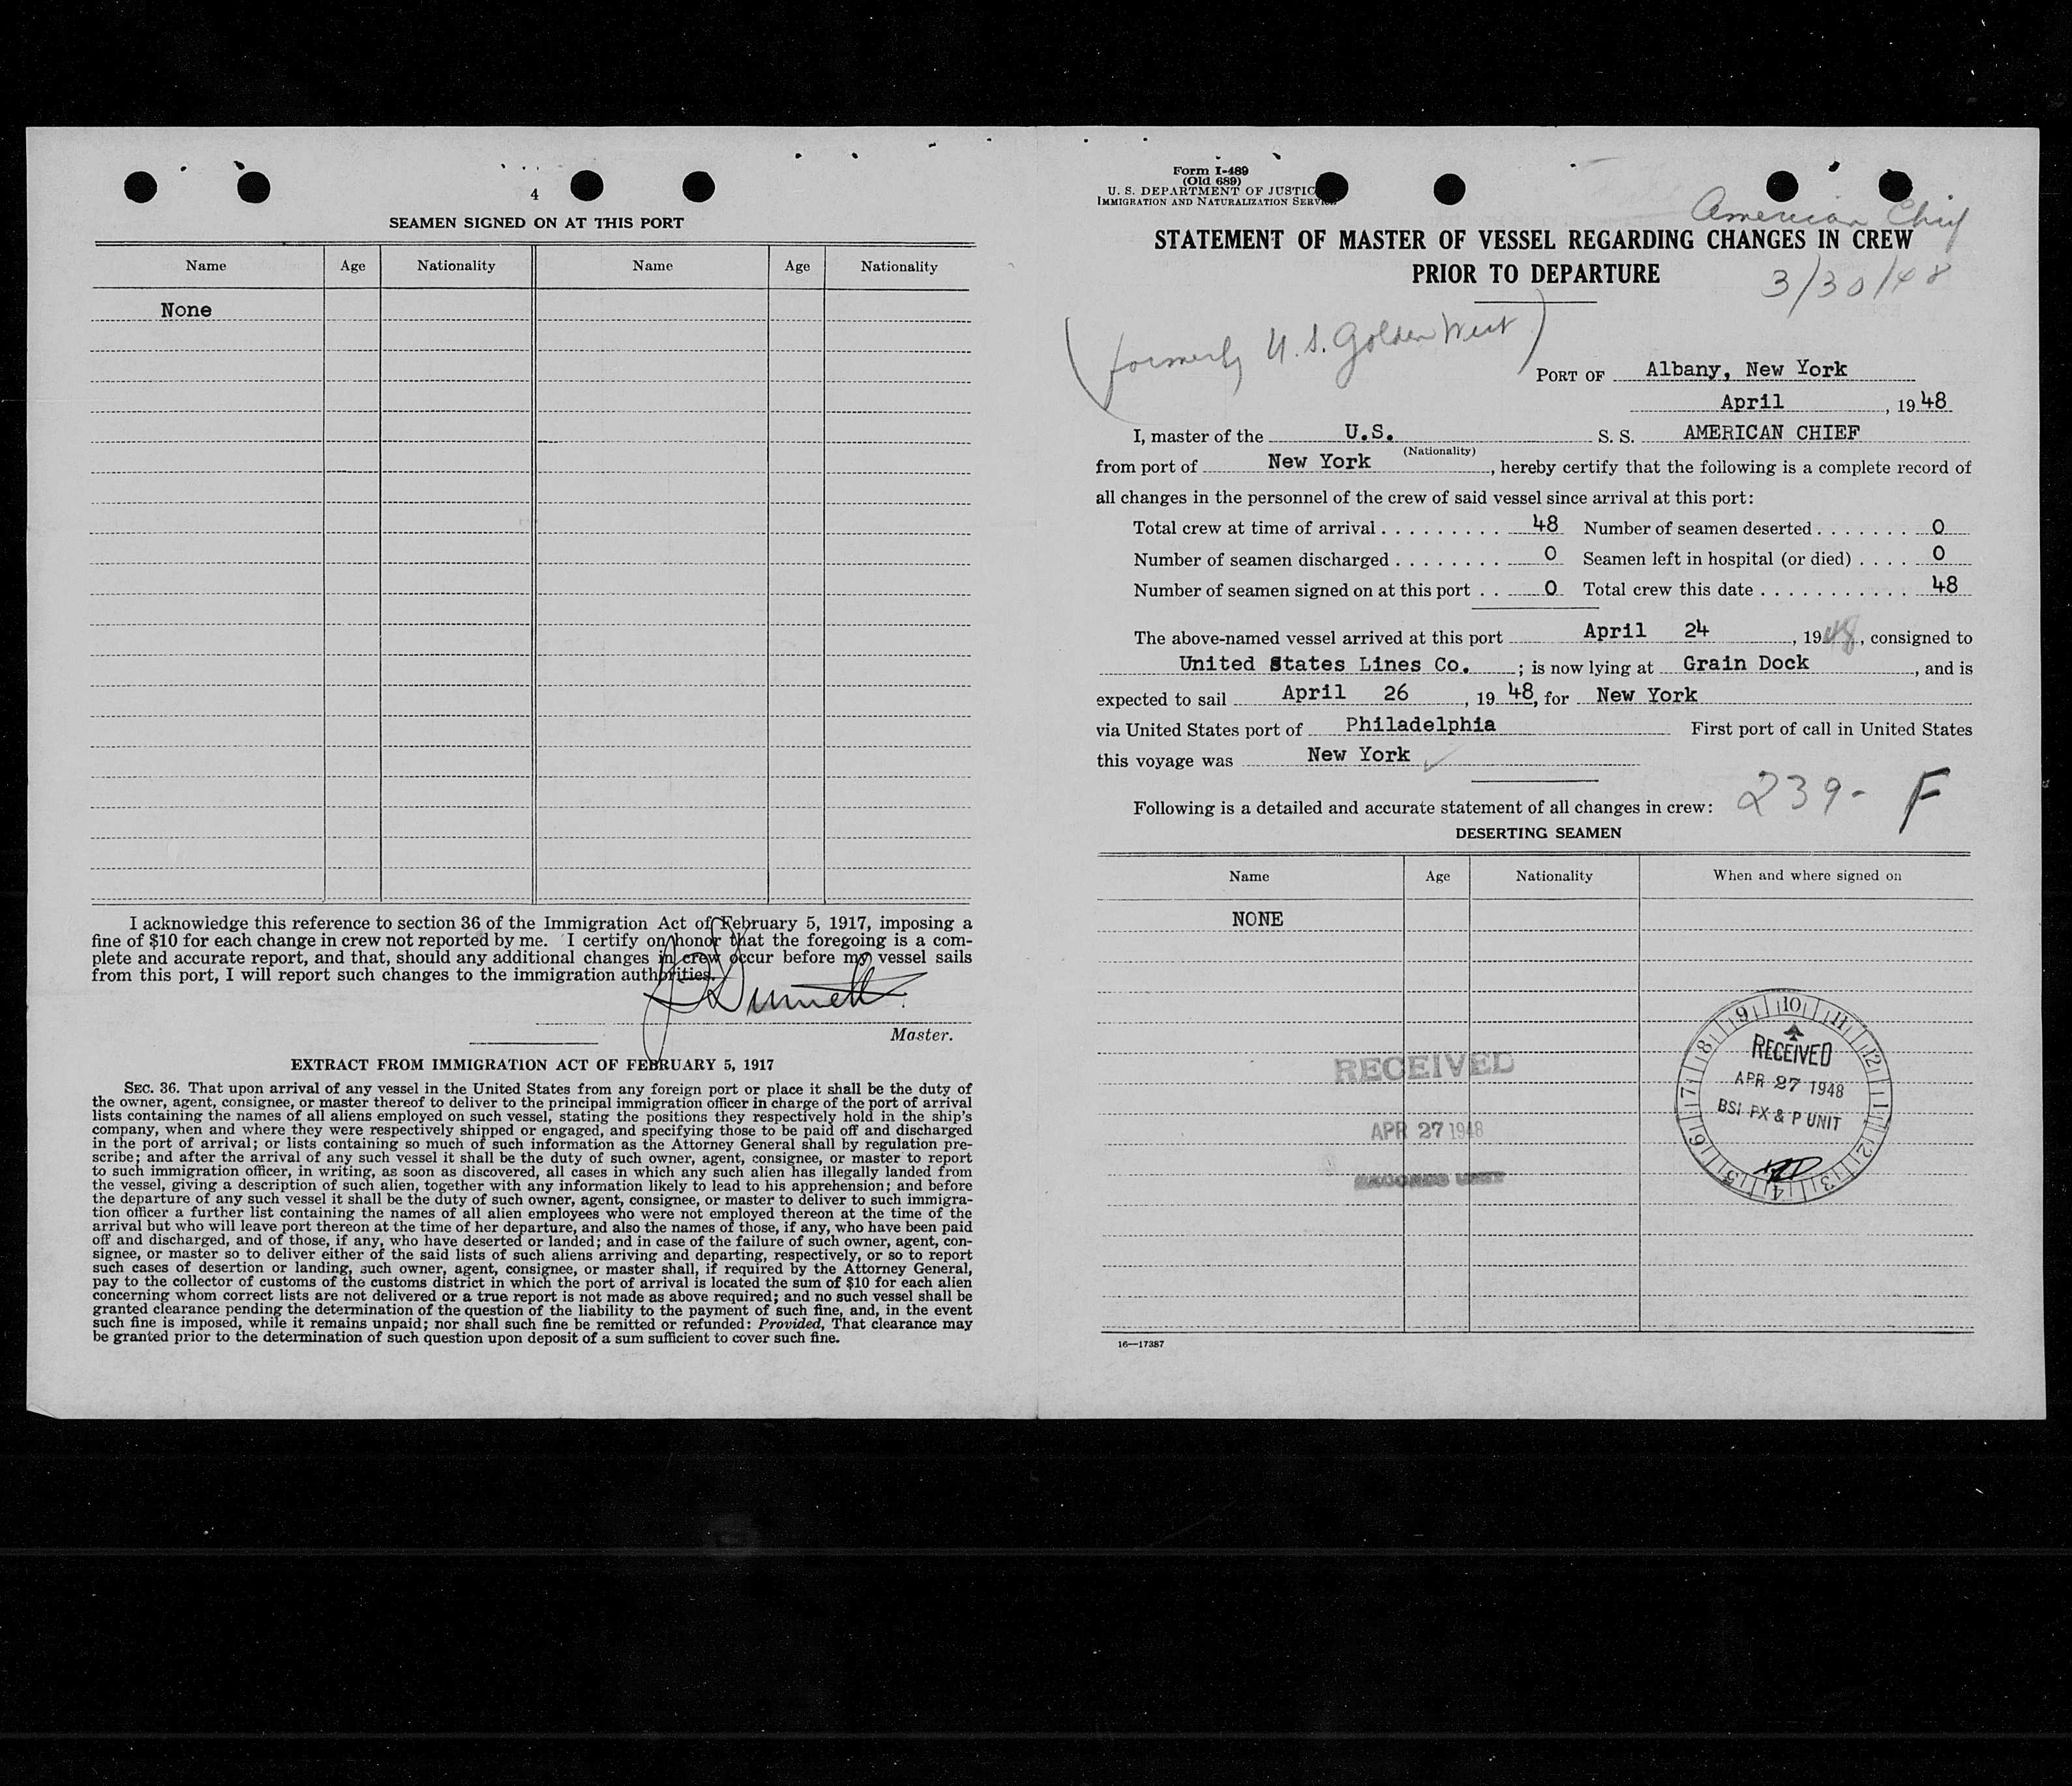 4
SEAMEN SIGNED ON AT THIS PORT
Name Age Nationality Name Age Nationality
None
I acknowledge this reference to section 36 of the Immigration Act of February 5, 1917, imposing a
fine of $10 for each change in crew not reported by me. I certify on honor that the foregoing is a com-
plete and accurate report, and that, should any additional changes in crew occur before my vessel sails
from this port, I will report such changes to the immigration authorities.
Master.
EXTRACT FROM IMMIGRATION ACT OF FEBRUARY 5, 1917
SEC. 36. That upon arrival of any vessel in the United States from any foreign port or place it shall be the duty of
the owner, agent, consignee, or master thereof to deliver to the principal immigration officer in charge of the port of arrival
lists containing the names of all aliens employed on such vessel, stating the positions they respectively hold in the ship's
company, when and where they were respectively shipped or engaged, and specifying those to be paid off and discharged
in the port of arrival; or lists containing so much of such information as the Attorney General shall by regulation pre-
scribe; and after the arrival of any such vessel it shall be the duty of such owner, agent, consignee, or master to report
to such immigration officer, in writing, as soon as discovered, all cases in which any such alien has illegally landed from
the vessel, giving a description of such alien, together with any information likely to lead to his apprehension; and before
the departure of any such vessel it shall be the duty of such owner, agent, consignee, or master to deliver to such immigra-
tion officer a further list containing the names of all alien employees who were not employed thereon at the time of the
arrival but who will leave port thereon at the time of her departure, and also the names of those, if any, who have been paid
off and discharged, and of those, if any, who have deserted or landed; and in case of the failure of such owner, agent, con-
signee, or master so to deliver either of the said lists of such aliens arriving and departing, respectively, or so to report
such cases of desertion or landing, such owner, agent, consignee, or master shall, if required by the Attorney General,
pay to the collector of customs of the customs district in which the port of arrival is located the sum of $10 for each alien
concerning whom correct lists are not delivered or a true report is not made as above required; and no such vessel shall be
granted clearance pending the determination of the question of the liability to the payment of such fine, and, in the event
such fine is imposed, while it remains unpaid; nor shall such fine be remitted or refunded: Provided, That clearance may
be granted prior to the determination of such question upon deposit of a sum sufficient to cover such fine.
Form I-489
(Old 689)
U. S. DEPARTMENT OF JUSTIC
IMMIGRATION AND NATURALIZATION SERVICE
American Chief
STATEMENT OF MASTER OF VESSEL REGARDING CHANGES IN CREW
PRIOR TO DEPARTURE
3/30/48
(formerly U.S. Golden West)
PORT OF Albany, New York
April , 1948
I, master of the U.S. S. S. AMERICAN CHIEF
(Nationality)
from port of New York , hereby certify that the following is a complete record of
all changes in the personnel of the crew of said vessel since arrival at this port:
Total crew at time of arrival . . . . . . . . . 48 Number of seamen deserted . . . . . . . 0
Number of seamen discharged . . . . . . . . 0 Seamen left in hospital (or died) . . . . 0
Number of seamen signed on at this port . . 0 Total crew this date . . . . . . . . . . . 48
The above-named vessel arrived at this port April 24 , 1948, consigned to
United States Lines Co. ; is now lying at Grain Dock , and is
expected to sail April 26 , 1948, for New York
via United States port of Philadelphia First port of call in United States
this voyage was New York ✓
Following is a detailed and accurate statement of all changes in crew: 239- F
DESERTING SEAMEN
Name Age Nationality When and where signed on
NONE
9 10 11 12 1 2 3 4 5 6 7 8
RECEIVED
APR 27 1948
BSI PX & P UNIT
RECEIVED
APR 27 1948
RECORDS UNIT
16—17387